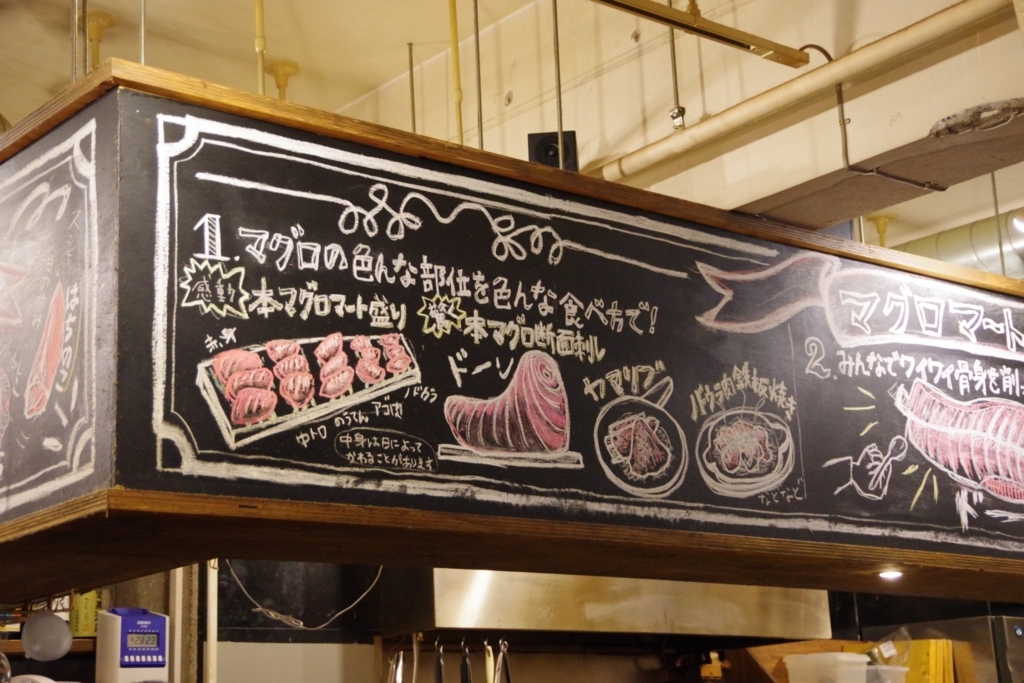 1. マグロの色んな部位を色んな食べ方で!
感動 本マグロマート盛り 驚 本マグロ断面刺し
赤身
ドーン
カマリブ
ノドカラ
アゴ肉
のうてん
中トロ
中身は日によって
かわることがあります
などなど
マグロマート
2. みんなでワイワイ骨身を削